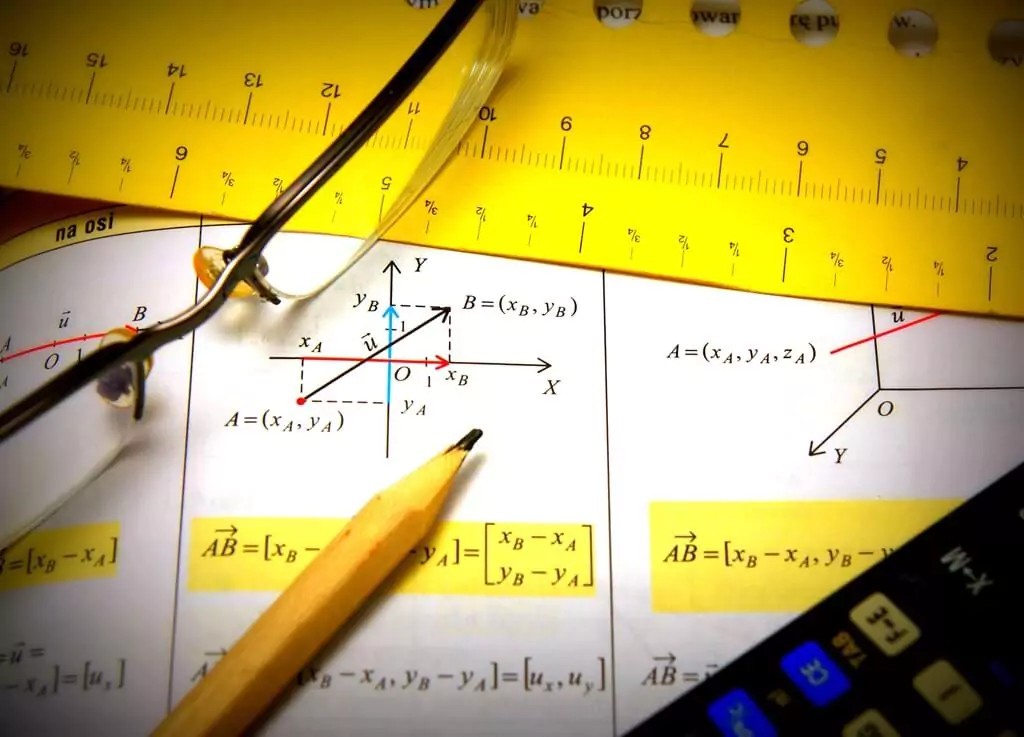 porz
owar
rę pu
w.
16 15 14 13 12 11 10 9 8 7 6 5 4
¾ ½ ¼ 6 ¾ ½ ¼ 5 ¾ ½ ¼ 4 ¾ ½ ¼ 3 ¾ ½ ¼ 2
na osi
A u⃗ O 1 B
Y
y_B
B=(x_B, y_B)
1
u⃗
x_A
O 1 x_B
X
y_A
A=(x_A, y_A)
u⃗
A=(x_A, y_A, z_A)
O
Y
=[x_B − x_A]
A͞B⃗=[x_B − y_A]=[x_B − x_A
y_B − y_A]
A͞B⃗=[x_B − x_A, y_B − y
=u⃗=
− x_A]=[u_x]
x_B − x_A, y_B − y_A]=[u_x, u_y]
AB⃗=
X→M
F↔E
TAB
CE